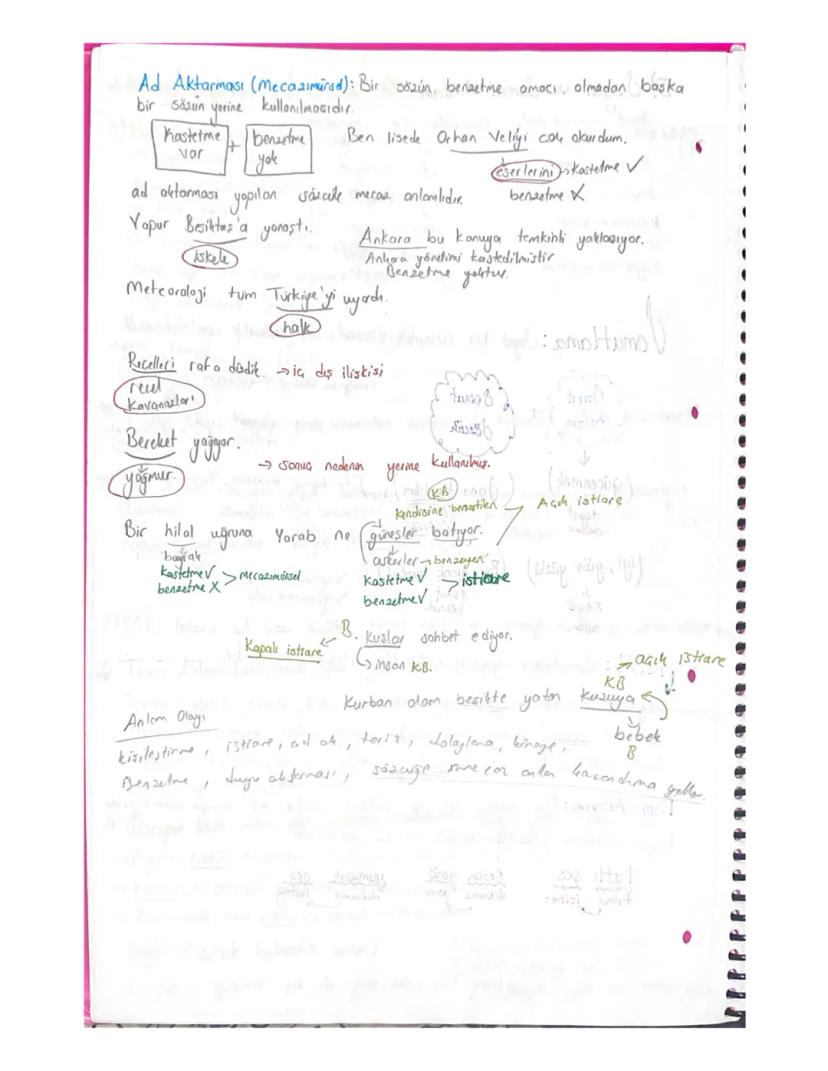 Ad Aktarması (Mecazımürsel): Bir sözün, benzetme amacı olmadan başka
bir sözün yerine kullanılmasıdır.
Kastetme var + benzetme yok
Ben lisede Orhan Veliyi çok okurdum.
eserlerini → kastetme ✓
benzetme X
ad aktarması yapılan sözcük mecaz anlamlıdır.
Vapur Beşiktaş'a yanaştı.
iskele
Ankara bu konuya temkinli yaklaşıyor.
Ankara yönetimi kastedilmiştir
Benzetme yoktur.
Meteoroloji tüm Türkiye'yi uyardı.
halk
Reçelleri rafa dizdik. → iç dış ilişkisi
reçel kavanozları
Bereket yağıyor.
yağmur
→ sonuç nedenin yerine kullanılmış.
KB
Kendisine benzetilen
Açık istiare
Bir hilal uğruna Yarab ne güneşler batıyor.
bayrak
askerler → benzeyen
kastetme ✓
benzetme X > Mecazımürsel
Kastetme ✓
benzetme ✓ → istiare
Kapalı istiare ← B. Kuşlar sohbet ediyor.
→ insan KB.
→ açık istiare
KB
Kurban olam beşikte yatan kuzuya
bebek
B
Anlam Olayı
kişileştirme, istiare, ad ak., tariz, dolaylama, kinaye,
Benzetme, duygu aktarması, sözcüğe anlam kazandırma